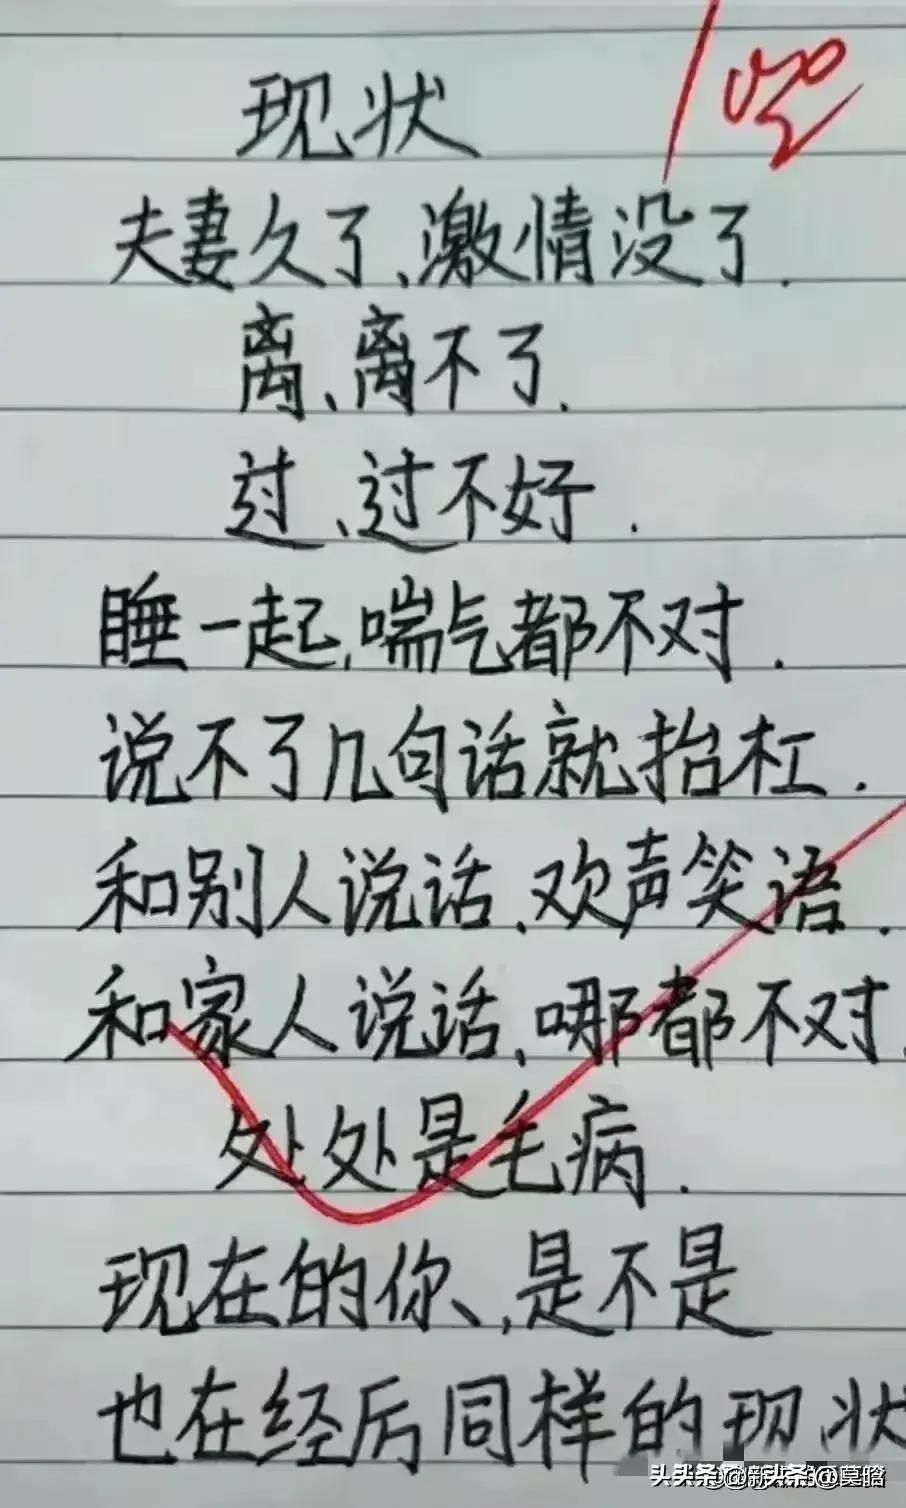 现状
100
夫妻久了、激情没了.
离、离不了.
过、过不好.
睡一起,喘气都不对.
说不了几句话就抬杠.
和别人说话、欢声笑语.
和家人说话、哪都不对.
处处是毛病.
现在的你、,是不是
也在经历同样的现状
头条